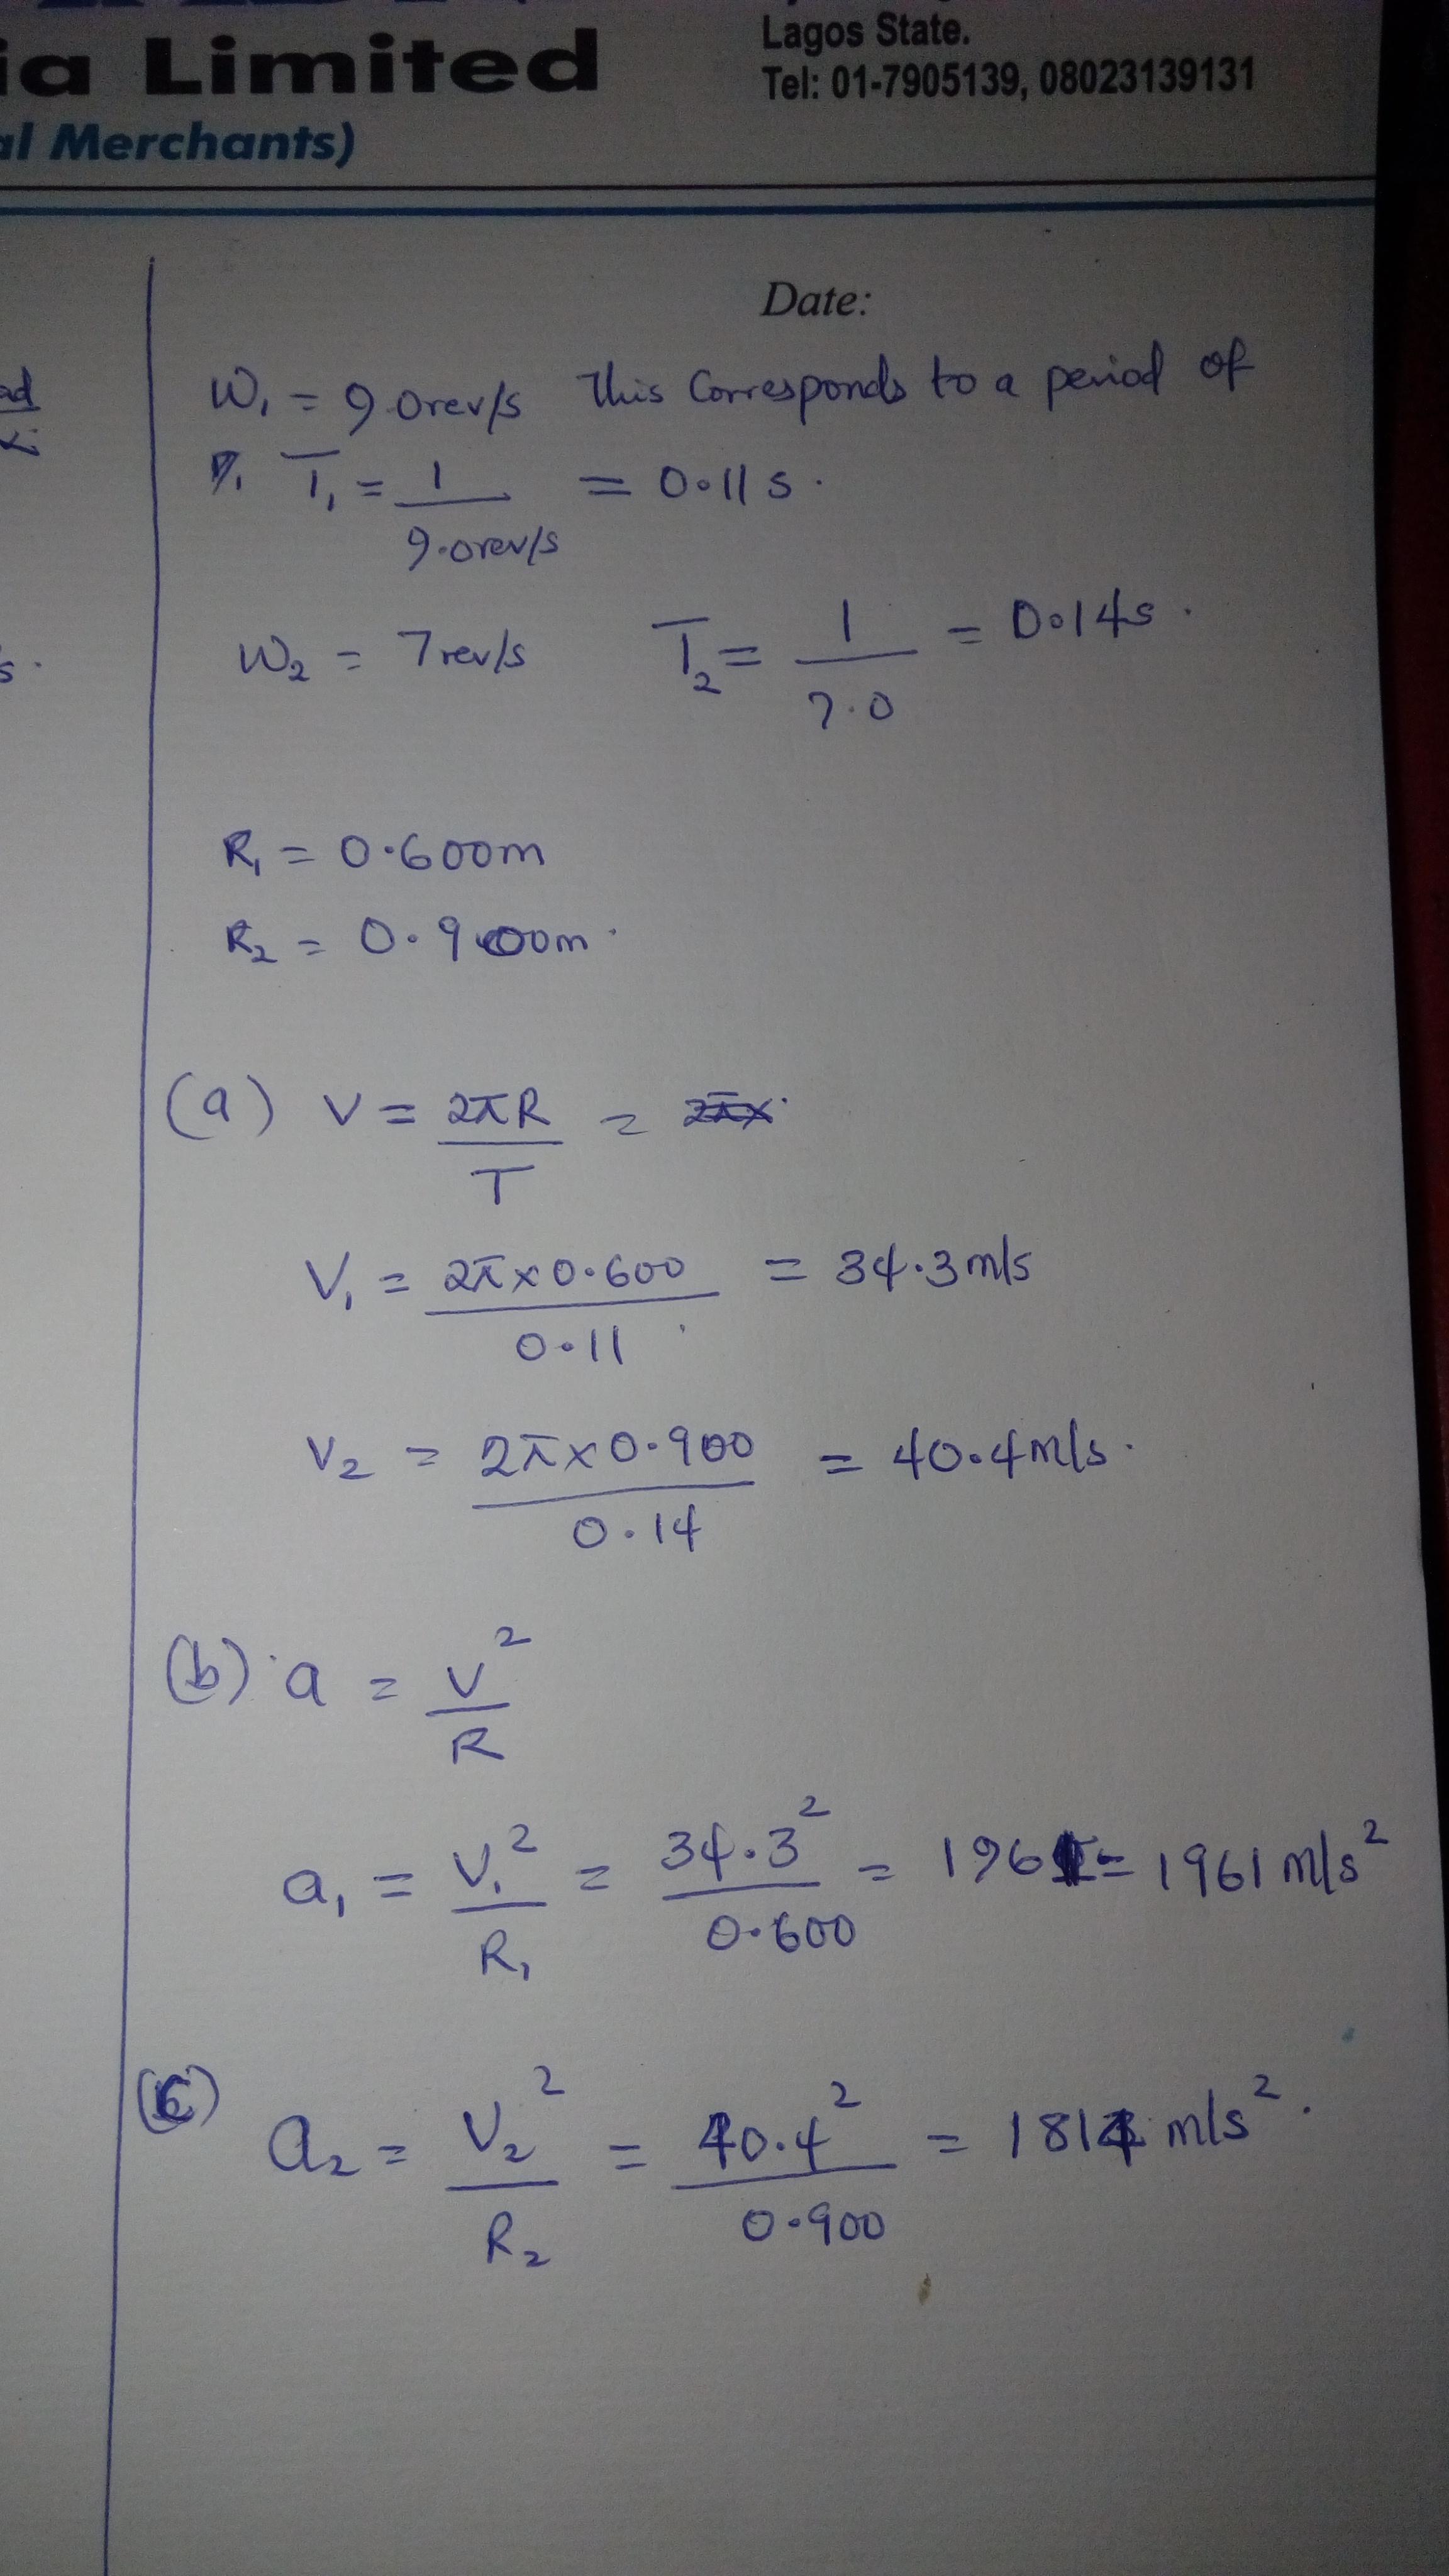 ia Limited
al Merchants)
Lagos State.
Tel: 01-7905139, 08023139131
Date:
W₁ = 9.0rev/s This Corresponds to a period of
T₁ = 1/9.0rev/s = 0.11s.
W₂ = 7rev/s T₂ = 1/7.0 = 0.14s.
R₁ = 0.600m
R₂ = 0.900m.
(a) V = 2πR/T =
V₁ = 2π×0.600/0.11 = 34.3m/s
V₂ = 2π×0.900/0.14 = 40.4m/s.
(b) a = V²/R
a₁ = V₁²/R₁ = 34.3²/0.600 = 1961 = 1961 m/s²
(c)
a₂ = V₂²/R₂ = 40.4²/0.900 = 1814 m/s².